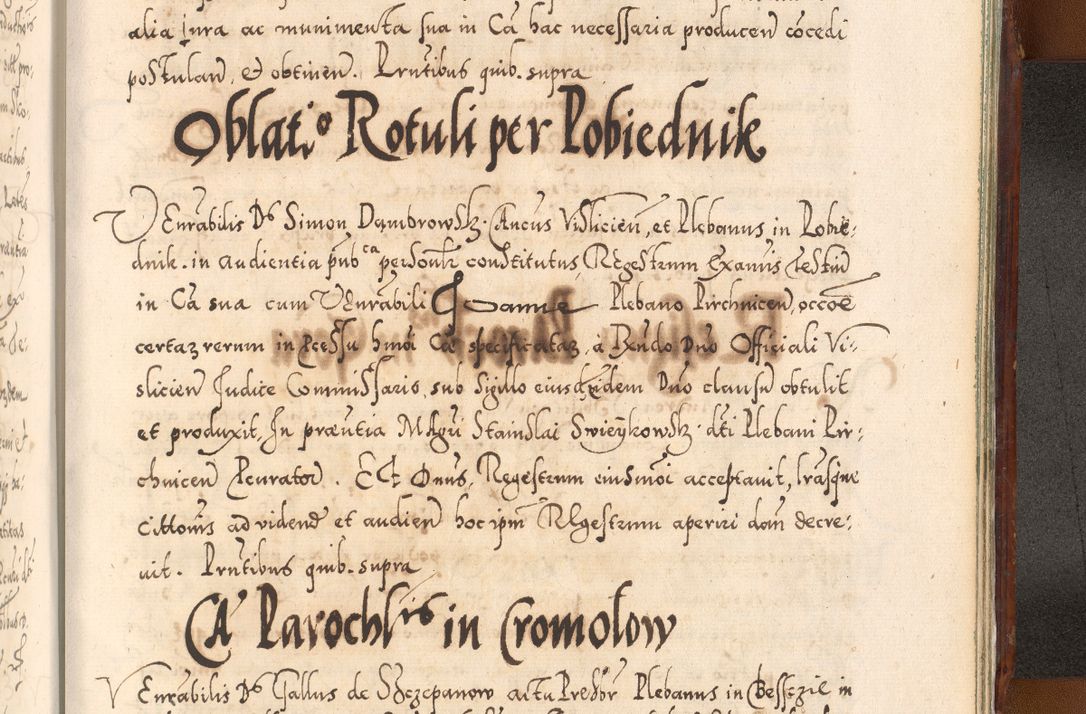 alia jura ac munimenta sua in Cã hac necessaria producen̄ cõcedi
postulan̄, et obtinen̄. Prn̄tibus quib. supra
Oblat:o Rotuli per Pobiednik
VEnrãbilis Ds Simon Dambrowsk. Cancus Vislicien̄, et Plebanus in Pobie⸗
dnik. in audientia pub ca personlr constitutus, Regestrum Examis Testiu
in Cã sua cum VEnrãbili Joanne Plebano Pirchnicen̄, occoē
certaz rerum in Pcessu hmōi Cæ specificataz, a Rxndo Dno Officiali Vi⸗
slicien̄ Judice Commissario, sub Sigillo eiusdem Dno clausu obtulit
et produxit, In præntia MAgri Stanislai Swieykowsk. dti Plebani Pir⸗
chnicen̄ Pcurator̄. Et Dnus, Regestrum eiusmōi acceptavit, lrãsque
Cittonis ad videnđ et audien̄ hoc ipm̄ REgestrum aperiri dari decre⸗
uit. Prn̄tibus quib. supra
CA Parochlis in Cromolow
VEnrãbilis Ds Gallus de Szczepanow actu Presbr Plebanus in Besszzie in